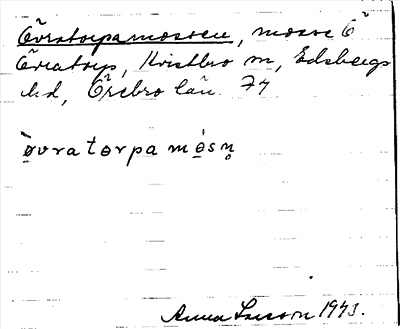 Övratorpamossen, mosse Ö
Övratorp, Kvistbro sn, Edsbergs
hd, Örebro län. 74
òvratɵrpa mɵ́sn̥
Anna Larsson 1943.